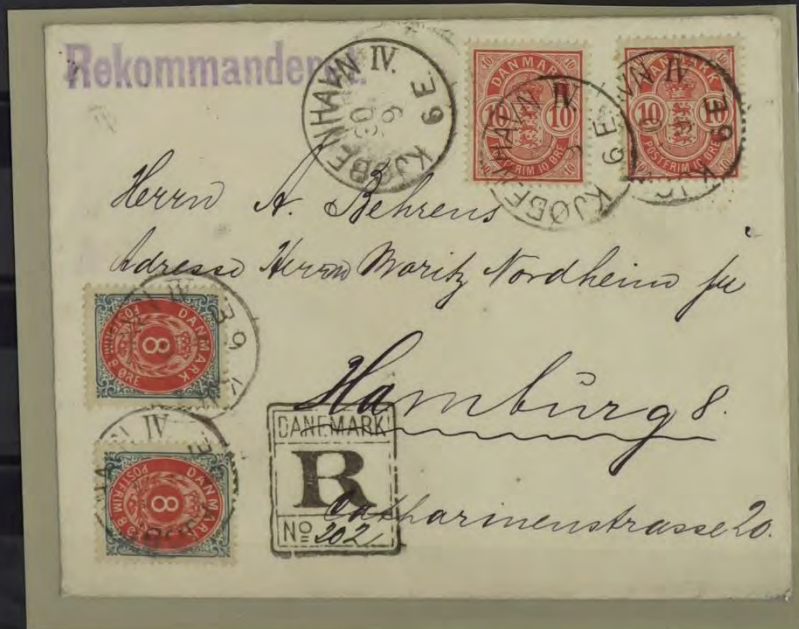 Rekommanderet.
KJØBENHAVN IV.
6 E
DANMARK
10 10
POSTFRIM 10 ØRE
KJØBENHAVN IV.
6 E
DANMARK
10 10
POSTFRIM 10 ØRE
IV
6 E
Herrn A. Behrens
Adresse Herrn Moritz Nordheim jr
Hamburg 8.
Catharinenstrasse 20.
DANMARK
8
POSTFRIM 8 ØRE
IV
6 E
DANMARK
8
POSTFRIM 8 ØRE
IV
DANEMARK
R
No 202